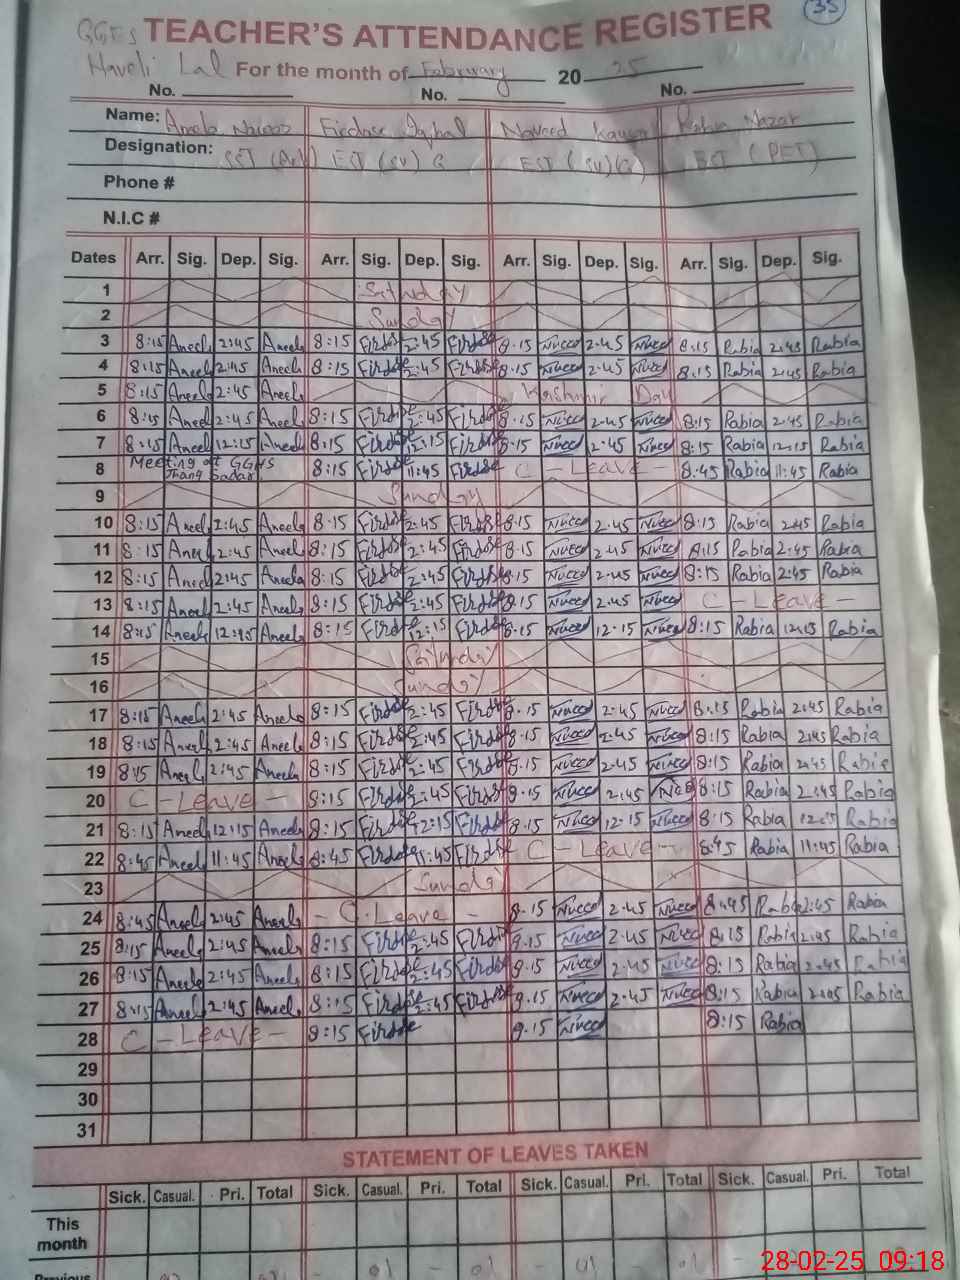 35
GGES TEACHER'S ATTENDANCE REGISTER
Haveli Lal For the month of February 20 25
No. No. No.
Name: Firdose Iqbal Naveed Nazar
Designation: SST EST (SV) G EST (SV)(G) EST (PET)
Phone #
N.I.C #
Dates Arr. Sig. Dep. Sig. Arr. Sig. Dep. Sig. Arr. Sig. Dep. Sig. Arr. Sig. Dep. Sig.
1
2 Sunday
3 8:15 Aneela 2:45 Aneela 8:15 Firdose 2:45 Firdose 8.15 2.45 8:15 Rabia 2:45 Rabia
4 8:15 Aneela 2:45 Aneela 8:15 Firdose 2:45 Firdose 8.15 2.45 8:15 Rabia 2:45 Rabia
5 8:15 Aneela 2:45 Aneela Kashmir Day
6 8:15 Aneela 2:45 Aneela 8:15 Firdose 2:45 Firdose 8.15 2.45 8:15 Rabia 2:45 Rabia
7 8:15 Aneela 12:15 Aneela 8:15 Firdose 12:15 Firdose 8.15 2.45 8:15 Rabia 12:15 Rabia
8 Meeting at GGHS Jhang Sadar. 8:15 Firdose 11:45 Firdose C - Leave - 8:45 Rabia 11:45 Rabia
9 Sunday
10 8:15 Aneela 2:45 Aneela 8:15 Firdose 2:45 Firdose 8.15 2.45 8:15 Rabia 2:45 Rabia
11 8:15 Aneela 2:45 Aneela 8:15 Firdose 2:45 Firdose 8.15 2.45 8:15 Rabia 2:45 Rabia
12 8:15 Aneela 2:45 Aneela 8:15 Firdose 2:45 Firdose 8.15 2.45 8:15 Rabia 2:45 Rabia
13 8:15 Aneela 2:45 Aneela 8:15 Firdose 2:45 Firdose 8.15 2.45 C - Leave -
14 8:15 Aneela 12:15 Aneela 8:15 Firdose 12:15 Firdose 8.15 12.15 8:15 Rabia 12:15 Rabia
15
16 Sunday
17 8:15 Aneela 2:45 Aneela 8:15 Firdose 2:45 Firdose 8.15 2.45 8:15 Rabia 2:45 Rabia
18 8:15 Aneela 2:45 Aneela 8:15 Firdose 2:45 Firdose 8.15 2.45 8:15 Rabia 2:45 Rabia
19 8:15 Aneela 2:45 Aneela 8:15 Firdose 2:45 Firdose 8.15 2.45 8:15 Rabia 2:45 Rabia
20 C - Leave - 8:15 Firdose 2:45 Firdose 8.15 2.45 8:15 Rabia 2:45 Rabia
21 8:15 Aneela 12:15 Aneela 8:15 Firdose 12:15 Firdose 8.15 12.15 8:15 Rabia 12:15 Rabia
22 8:45 Aneela 11:45 Aneela 8:45 Firdose 11:45 Firdose C - Leave - 8:45 Rabia 11:45 Rabia
23 Sunday
24 8:45 Aneela 2:45 Aneela - C Leave - 8.15 2.45 8:45 Rabia 2:45 Rabia
25 8:15 Aneela 2:45 Aneela 8:15 Firdose 2:45 Firdose 8.15 2.45 8:15 Rabia 2:45 Rabia
26 8:15 Aneela 2:45 Aneela 8:15 Firdose 2:45 Firdose 8.15 2.45 8:15 Rabia 2:45 Rabia
27 8:15 Aneela 2:45 Aneela 8:15 Firdose 2:45 Firdose 8.15 2.45 8:15 Rabia 2:45 Rabia
28 C - Leave - 8:15 Firdose 8.15 8:15 Rabia
29
30
31
STATEMENT OF LEAVES TAKEN
Sick. Casual. Pri. Total Sick. Casual. Pri. Total Sick. Casual. Pri. Total Sick. Casual. Pri. Total
This month
Previous
28-02-25 09:18